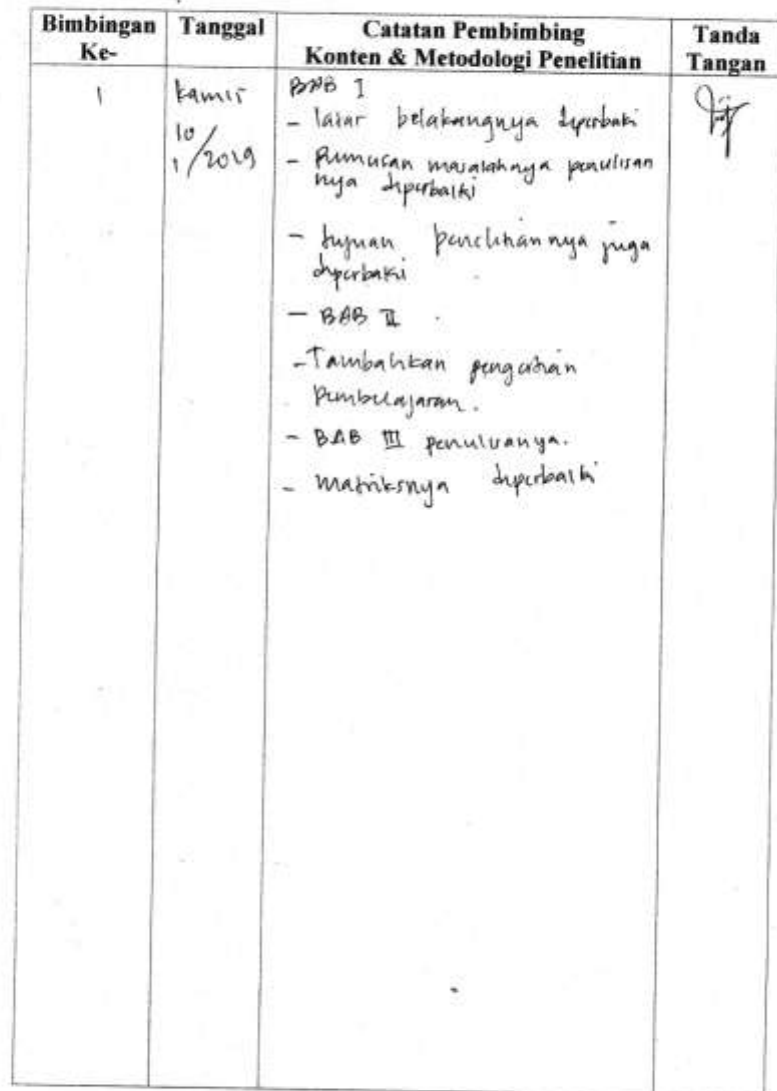 Bimbingan Ke- Tanggal Catatan Pembimbing Konten & Metodologi Penelitian Tanda Tangan
1 Kamis BAB I
10/1/2019 - latar belakangnya diperbaiki
- Rumusan masalahnya penulisan
nya diperbaiki
- tujuan penelitiannya juga
diperbaiki
- BAB II
- Tambahkan pengertian
Pembelajaran.
- BAB III penulisanya.
- Matriksnya diperbaiki